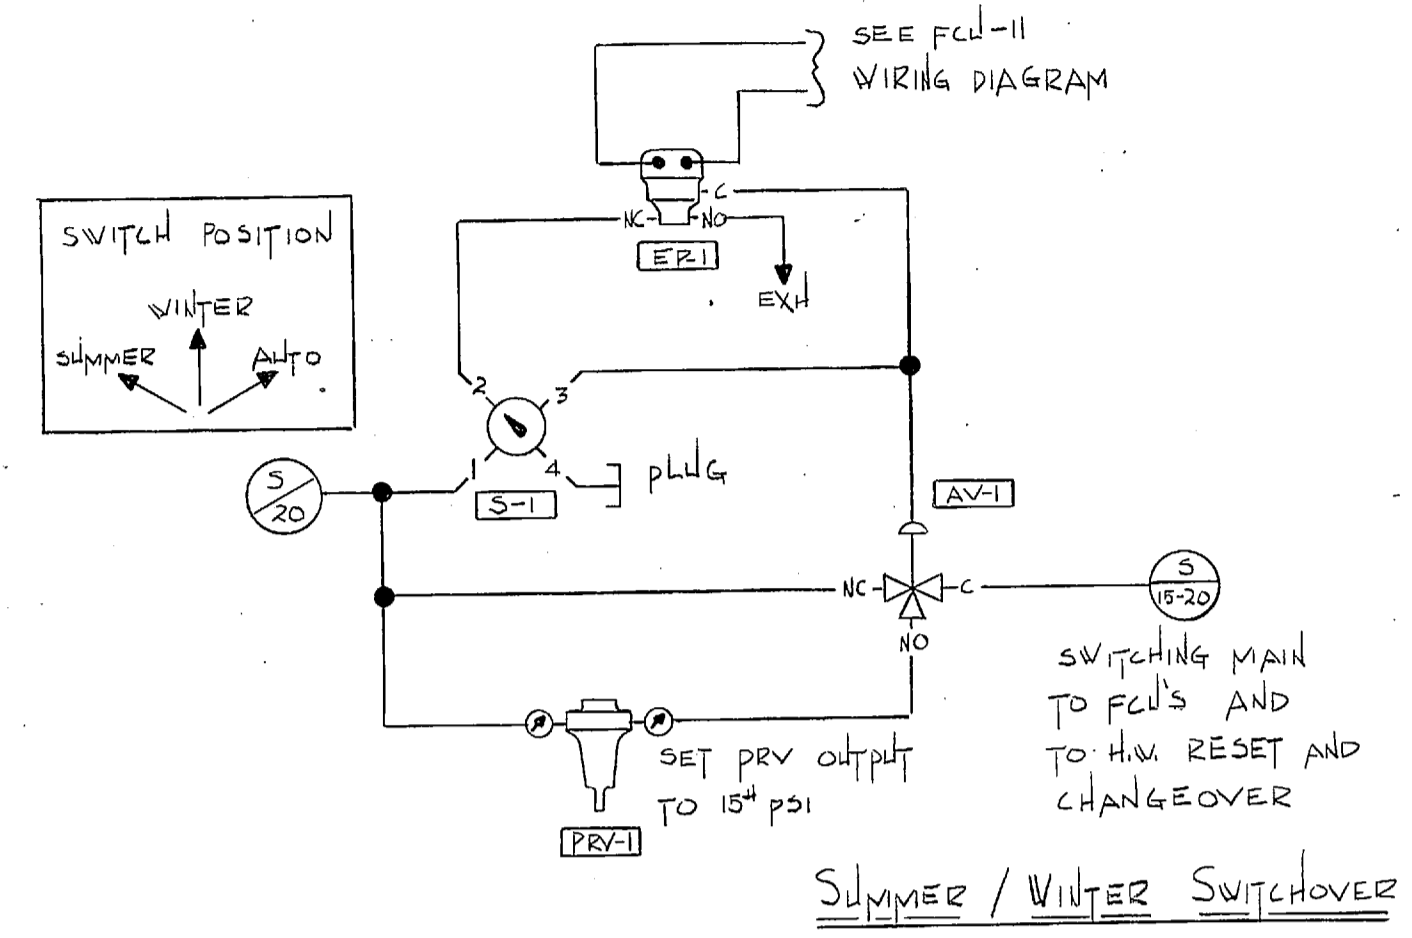 SEE FCU-11
WIRING DIAGRAM
C
NC
NO
EP-1
EXH
SWITCH POSITION
WINTER
SUMMER
AUTO
2
3
1
4
PLUG
S-1
S
20
AV-1
NC
C
NO
S
15-20
SWITCHING MAIN
TO FCU'S AND
TO H.W. RESET AND
CHANGEOVER
SET PRV OUTPUT
TO 15# PSI
PRV-1
SUMMER / WINTER SWITCHOVER